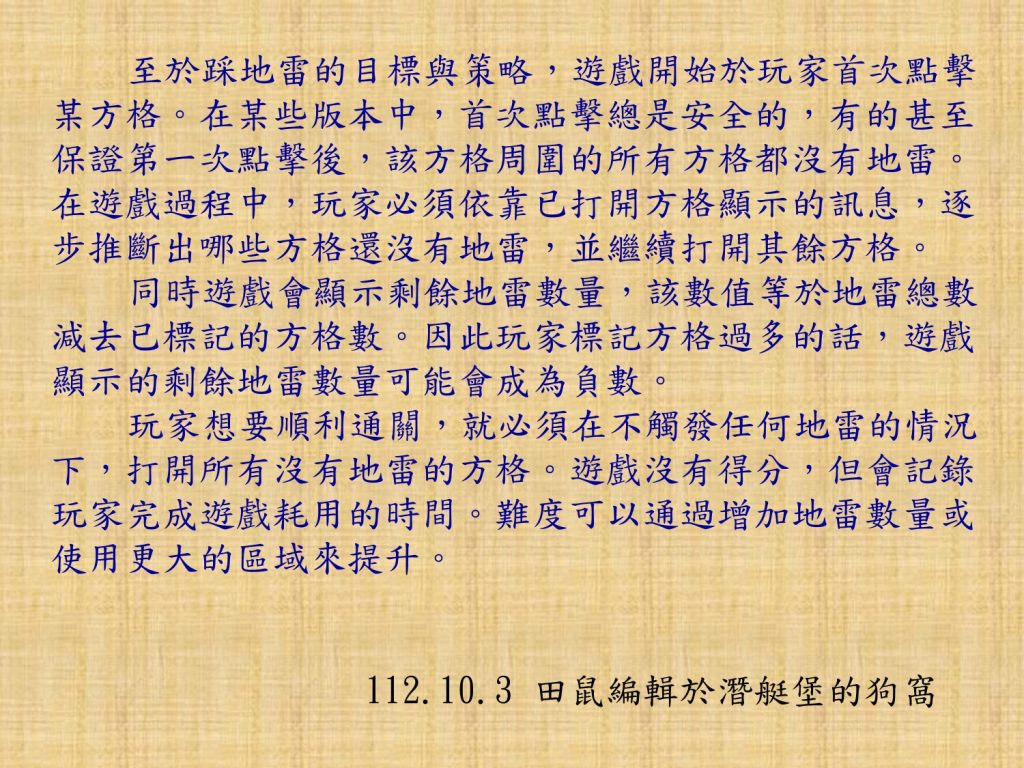 至於踩地雷的目標與策略，遊戲開始於玩家首次點擊
某方格。在某些版本中，首次點擊總是安全的，有的甚至
保證第一次點擊後，該方格周圍的所有方格都沒有地雷。
在遊戲過程中，玩家必須依靠已打開方格顯示的訊息，逐
步推斷出哪些方格還沒有地雷，並繼續打開其餘方格。
同時遊戲會顯示剩餘地雷數量，該數值等於地雷總數
減去已標記的方格數。因此玩家標記方格過多的話，遊戲
顯示的剩餘地雷數量可能會成為負數。
玩家想要順利通關，就必須在不觸發任何地雷的情況
下，打開所有沒有地雷的方格。遊戲沒有得分，但會記錄
玩家完成遊戲耗用的時間。難度可以通過增加地雷數量或
使用更大的區域來提升。
112.10.3 田鼠編輯於潛艇堡的狗窩